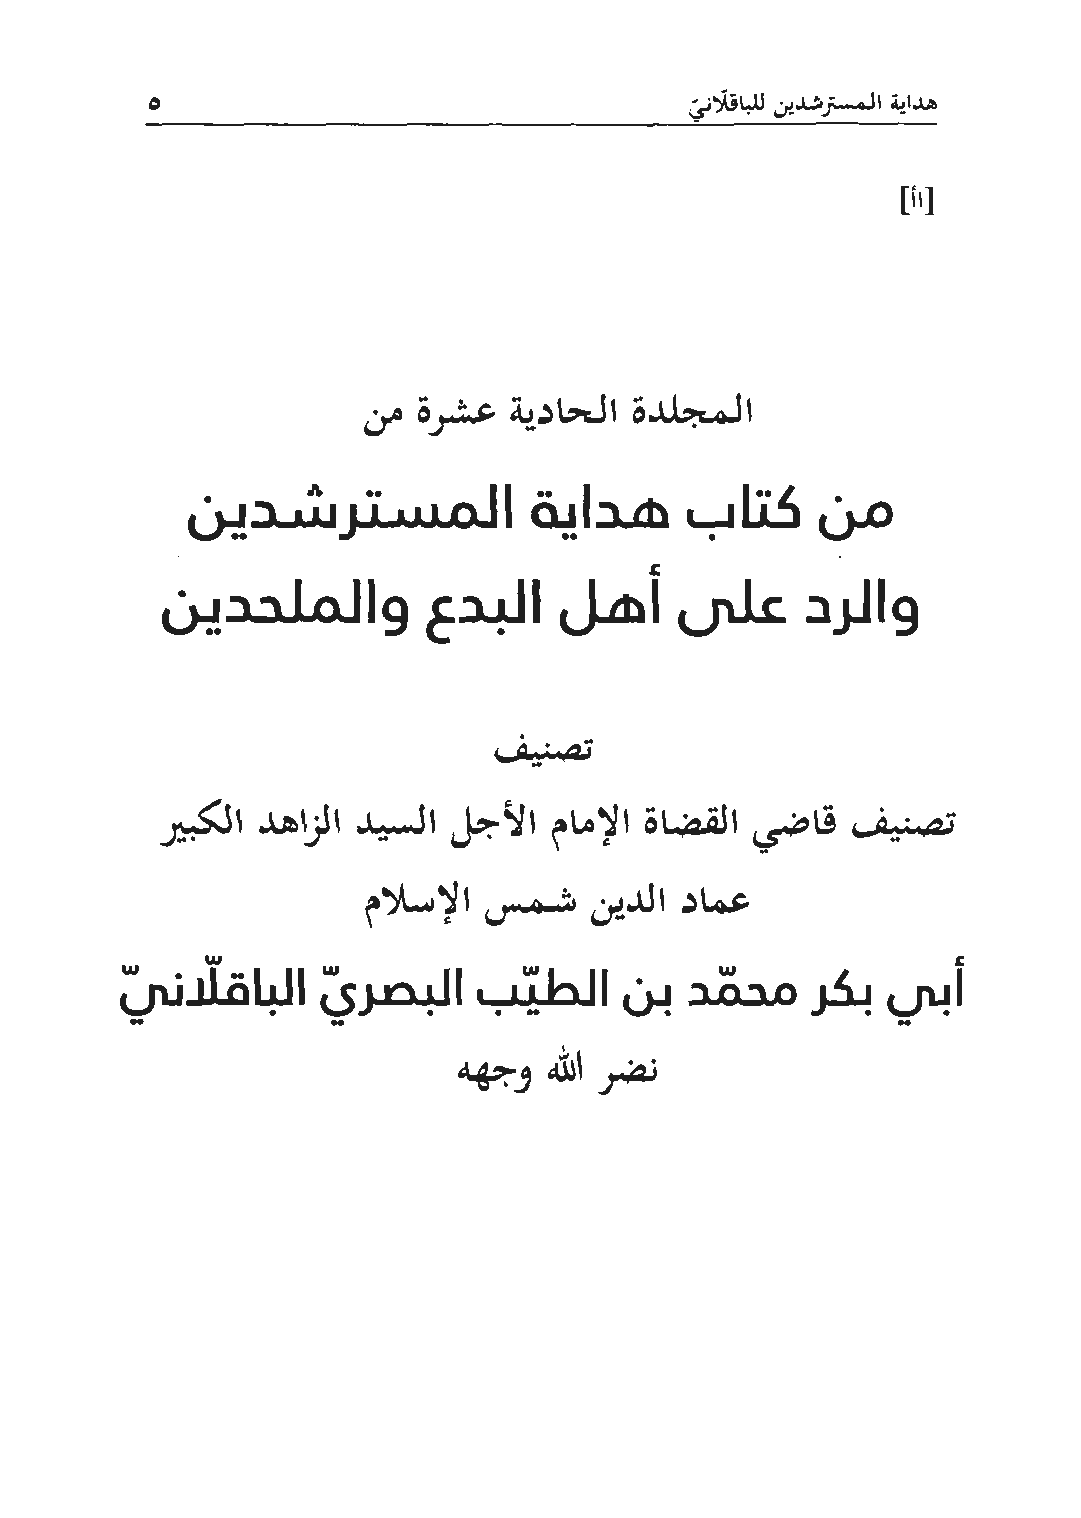 هداية المسترشدين للباقلّانيّ ٥
[١أ]
المجلدة الحادية عشرة من
من كتاب هداية المسترشدين
والرد على أهل البدع والملحدين
تصنيف
تصنيف قاضي القضاة الإمام الأجل السيد الزاهد الكبير
عماد الدين شمس الإسلام
أبي بكر محمّد بن الطيّب البصريّ الباقلّانيّ
نضر الله وجهه